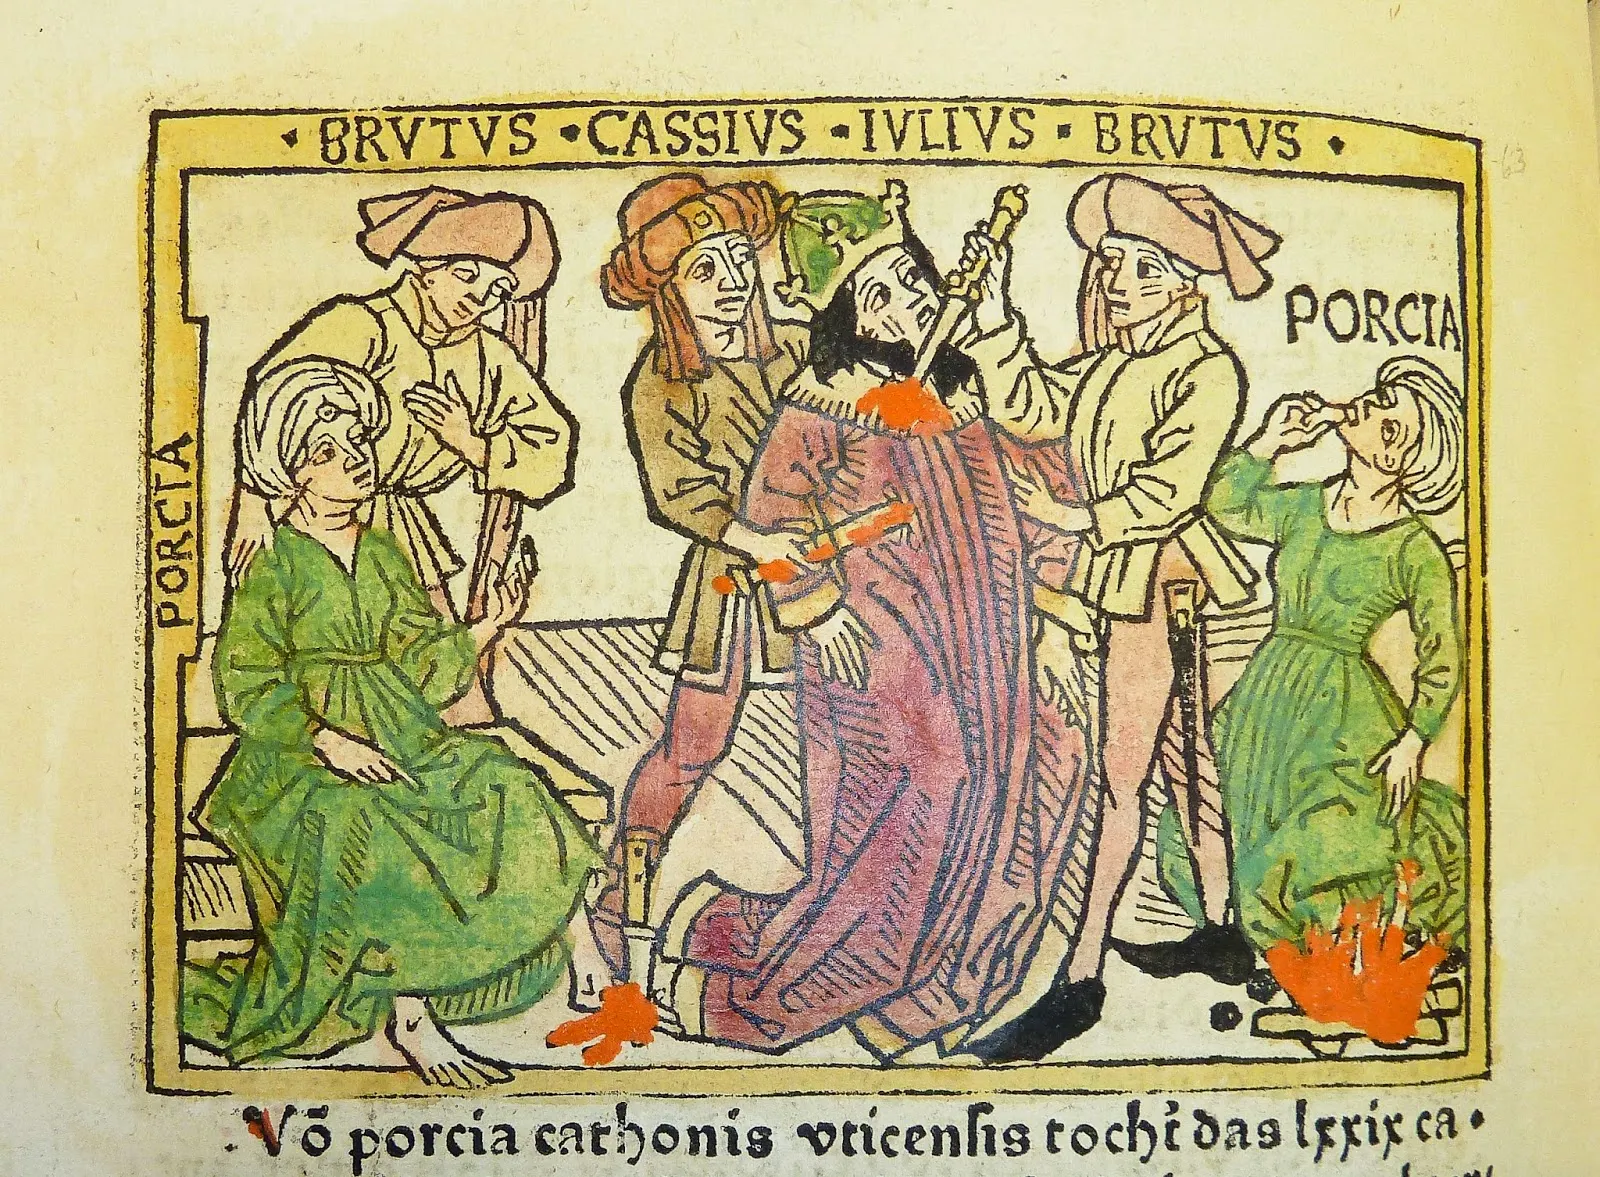 · BRVTVS · CASSIVS · IVLIVS · BRVTVS ·
PORCIA
PORCIA
63
Võ porcia cathonis vticensis tocht̃ das lxxix ca·